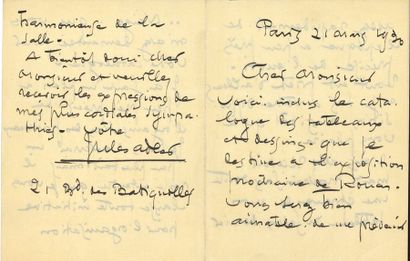 Paris 21 mars 1930
Cher Monsieur
Voici inclus le cata
logue des tableaux
et dessins que je
destine à l'exposition
prochaine de Rouen.
Vous serez bien
aimable de me prévenir
harmonieuse de la
salle.
A bientôt donc cher
Monsieur et veuillez
recevoir les expressions de
mes plus cordiales sympa
thies - Vôtre
Jules Adler
2 Bd. des Batignolles